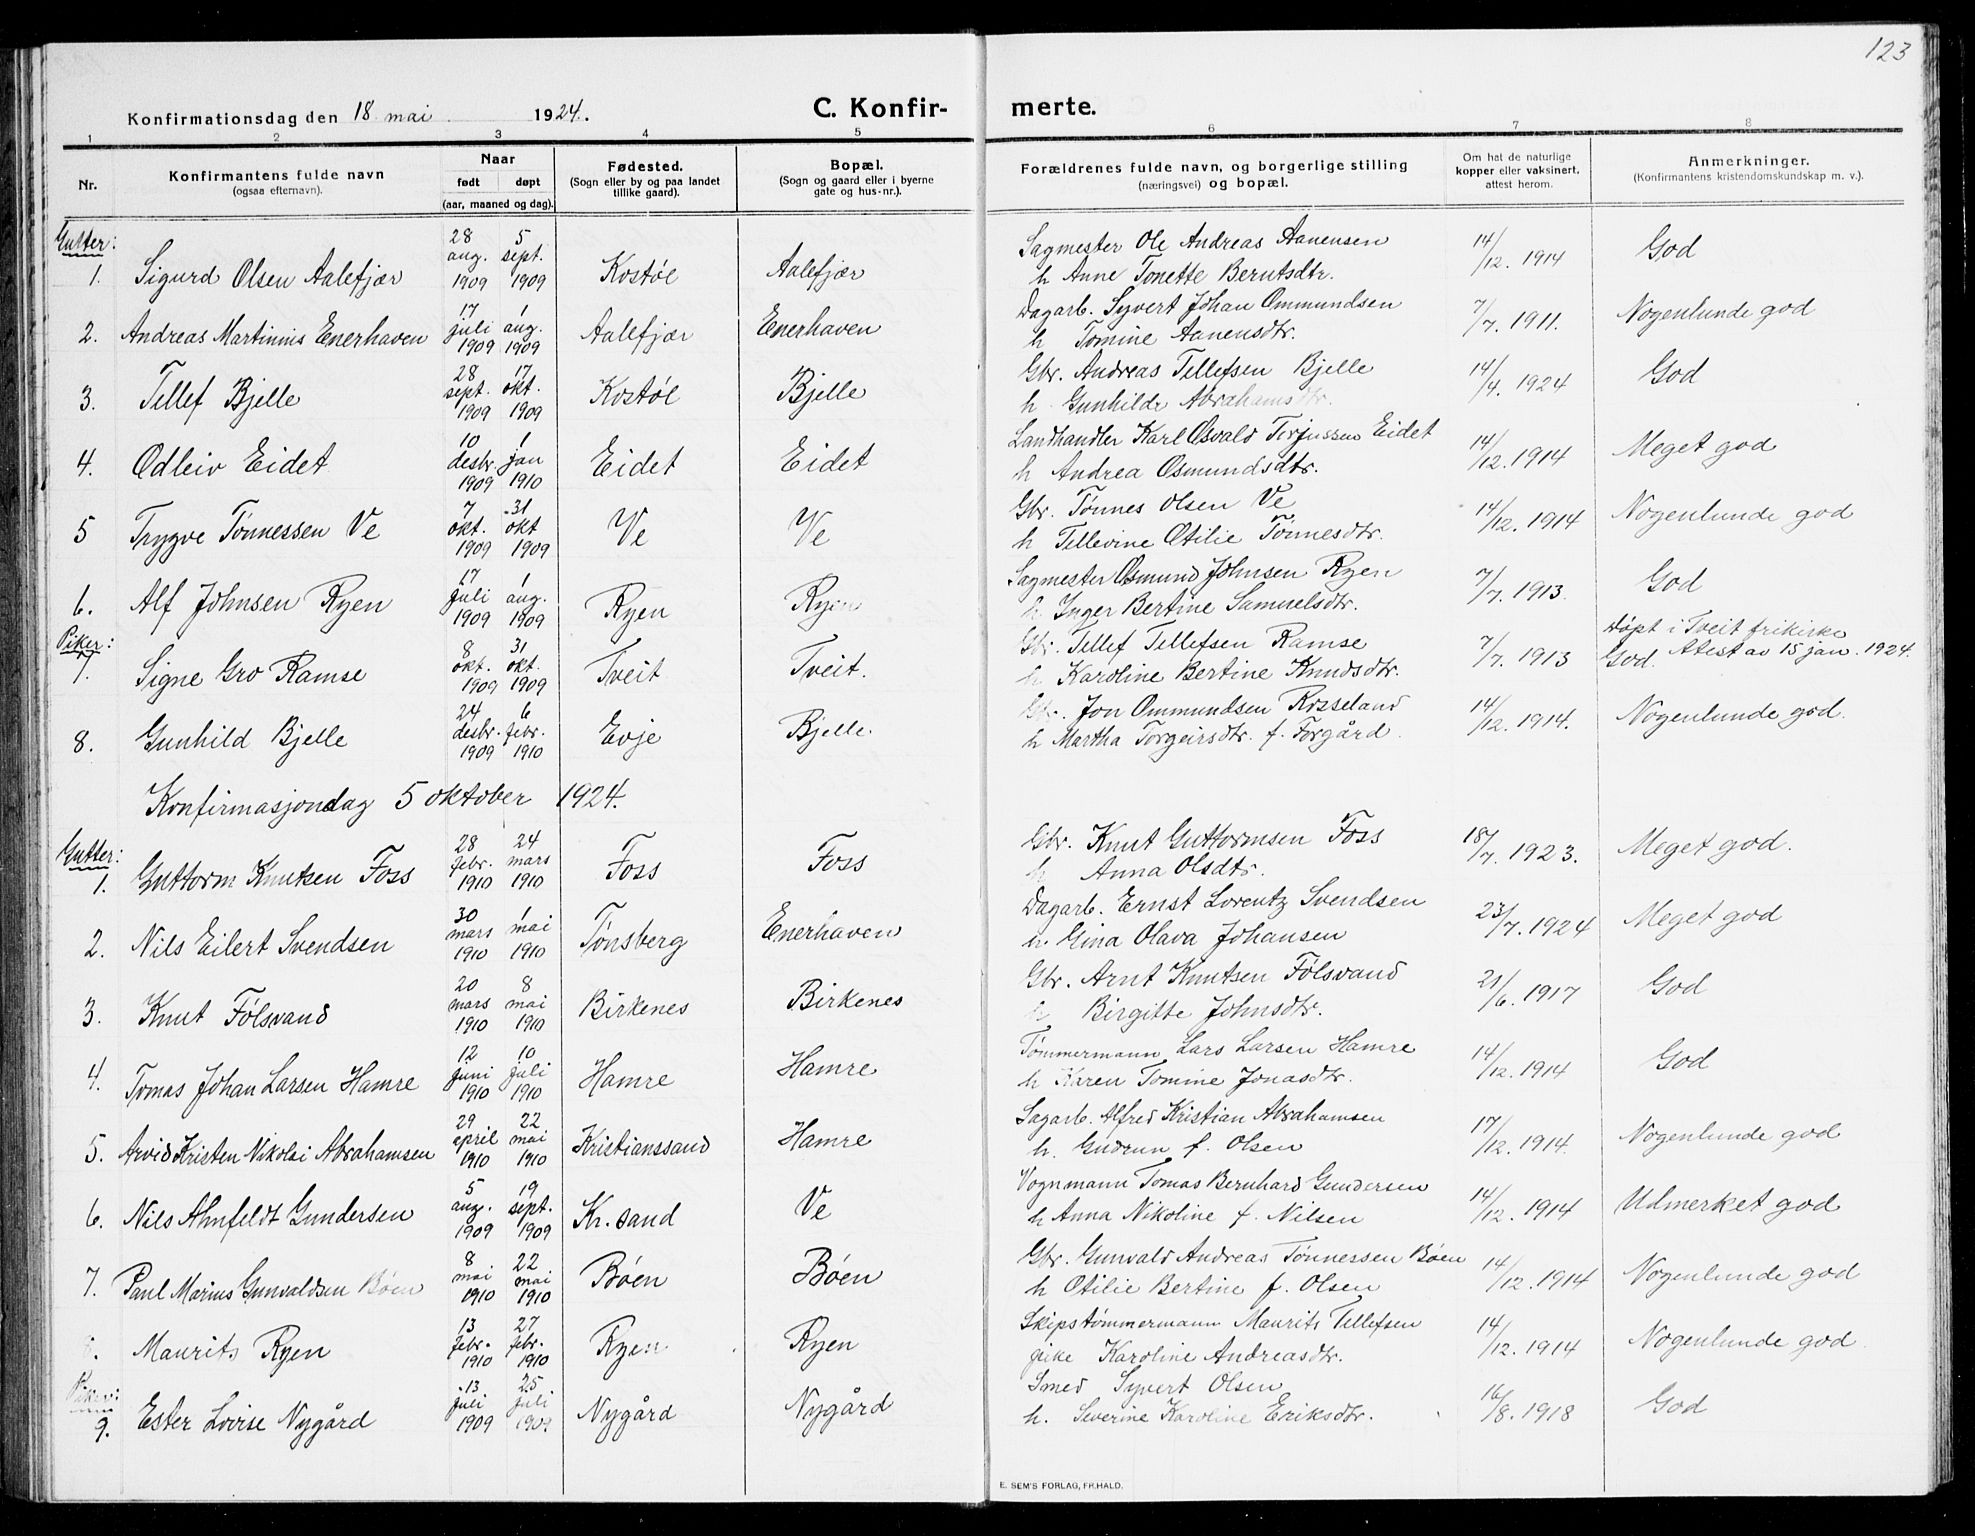 123
Konfirmationsdag den 18 mai 1924. C. Konfirmerte.
1 2 3 4 5 6 7 8
Nr. Konfirmantens fulde navn (ogsaa efternavn). Naar født døpt (aar, maaned og dag). Fødested. (Sogn eller by og paa landet tillike gaard). Bopæl. (Sogn og gaard eller i byerne gate og hus-nr.). Forældrenes fulde navn, og borgerlige stilling (næringsvei) og bopæl. Om hat de naturlige kopper eller vaksinert, attest herom. Anmerkninger. (Konfirmantens kristendomskundskap m. v.).
Gutter:
1. Sigurd Olsen Aalefjær 28 aug. 1909 5 sept. 1909 Kostøl Aalefjær Sagmester Ole Andreas Aanensen 14/12. 1914 God
h Anne Tonette Berntsdtr.
2. Andreas Martinius Enerhaven 17 juli 1909 1 aug. 1909 Aalefjær Enerhaven Dagarb. Syvert Johan Ommundsen 7/7. 1911. Nogenlunde god
h Tomine Aanensdtr.
3. Tellef Bjelle 28 sept. 1909 17 okt. 1909 Kostøl Bjelle Gbr. Andreas Tellefsen Bjelle 14/4. 1924 God
h. Gunhilde Abrahamsdtr.
4. Odleiv Eidet 10 desbr. 1909 1 jan 1910 Eidet Eidet Landhandler Karl Osvald Terjussen Eidet 14/12. 1914 Meget god
h Andrea Osmundsdtr.
5 Trygve Tønnessen Ve 7 okt. 1909 31 okt 1909 Ve Ve Gbr. Tønnes Olsen Ve 14/12. 1914 Nogenlunde god
h Tellevine Otilie Tønnesdtr.
6. Alf Johnsen Ryen 17 juli 1909 1 aug. 1909 Ryen Ryen Sagmester Osmund Johnsen Ryen 7/7. 1913. God
h Inger Bertine Samuelsdtr.
Piker:
7. Signe Gro Ramse 8 okt. 1909 31 okt. 1909 Tveit Tveit. Gbr. Tellef Tellefsen Ramse 7/7. 1913 Døpt i Tveit frikirke
h Karoline Bertine Knudsdtr. God. Atest av 15 jan. 1924.
8. Gunhild Bjelle 24 desbr. 1909 6 febr. 1910 Evje Bjelle. Gbr. Jon Ommundsen Rosseland 14/12. 1914. Nogenlunde god.
h Martha Torgeirsdtr. f. Forgård.
Konfirmasjondag 5 oktober 1924.
Gutter:
1. Guttorm Knutsen Foss 28 febr. 1910 24 mars 1910 Foss Foss Gbr. Knut Guttormsen Foss 18/7. 1923. Meget god.
h Anna Olsdtr.
2. Nils Eilert Svendsen 30 mars 1910 1 mai 1910 Tønsberg Enerhaven Dagarb. Ernst Lorentz Svendsen 23/7. 1924 Meget god
h. Gina Olava Johansen
3. Knut Følsvand 20 mars 1910 8 mai 1910 Birkenes Birkenes Gbr. Arnt Knutsen Følsvand 21/6. 1917 God
h Birgitte Johnsdtr.
4. Tomas Johan Larsen Hamre 12 juni 1910 10 juli 1910 Hamre Hamre Tømmermann Lars Larsen Hamre 14/12. 1914 God
h Karen Tomine Jonasdtr.
5. Arvid Kristen Nikolai Abrahamsen 29 april 1910 22 mai 1910 Kristianssand Hamre Sagarb. Alfred Kristian Abrahamsen 17/12. 1914. Nogenlunde god
h. Gudrun f. Olsen
6. Nils Ahnfeldt Gundersen 5 aug. 1909 19 sept. 1909 Kr. sand Ve Vognmann Tomas Bernhard Gundersen 14/12. 1914 Udmerket god
h Anna Nikoline f. Nilsen
7. Paul Marius Gunvaldsen Bøen 8 mai 1910 22 mai 1910 Bøen Bøen Gbr. Gunvald Andreas Tønnessen Bøen 14/12. 1914 Nogenlunde god
h Otilie Bertine f. Olsen
8. Maurits Ryen 13 febr. 1910 27 febr. 1910 Ryen Ryen Skipstømmermann Maurits Tellefsen 14/12. 1914 Nogenlunde god.
pike Karoline Andreasdtr.
Piker:
9. Ester Lovise Nygård 13 juli 1909 25 juli 1909 Nygård Nygård Smed Syvert Olsen 16/8. 1918 God
h. Severine Karoline Eriksdtr.
E. SEM'S FORLAG, FR.HALD.